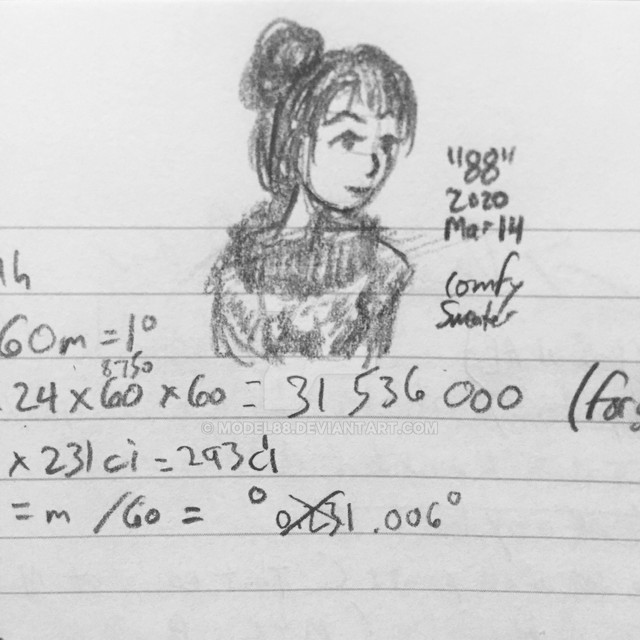 "88"
2020
Mar 14
comfy
Sweater
60m = 1°
8750
24 x 60 x 60 = 31 536 000
© MODEL88.DEVIANTART.COM
x 231 ci = 293 ci
= m / 60 = ° .006°